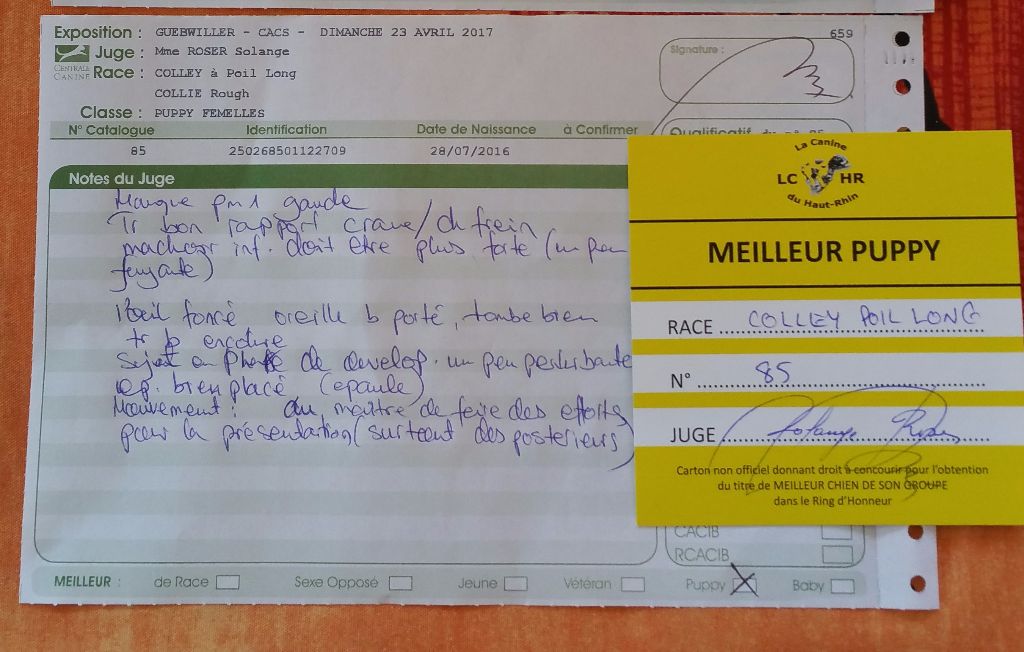 Exposition : GUEBWILLER - CACS - DIMANCHE 23 AVRIL 2017
659
CENTRALE CANINE
Juge : Mme ROSER Solange
Signature :
Race : COLLEY à Poil Long
COLLIE Rough
Classe : PUPPY FEMELLES
N° Catalogue Identification Date de Naissance à Confirmer Qualificatif
85 250268501122709 28/07/2016
Notes du Juge
Manque pm1 gauche
Tr bon rapport crane/chfrein
machoir inf. doit etre plus forte (un peu
fuyante)
l'oeil foncé oreille b porté, tombe bien
tr b encolure
Sujet en phase de develop. un peu perturbante
ep. bien placé (epaule)
Mouvement : au maître de feire des efforts
pour la présentation (surtout des posterieurs)
CACIB
RCACIB
MEILLEUR : de Race Sexe Opposé Jeune Vétéran Puppy Baby
La Canine
LC HR
du Haut-Rhin
MEILLEUR PUPPY
RACE COLLEY POIL LONG
N° 85
JUGE Solange Roser
Carton non officiel donnant droit à concourir pour l'obtention
du titre de MEILLEUR CHIEN DE SON GROUPE
dans le Ring d'Honneur